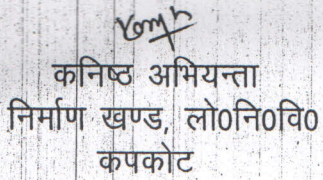 कनिष्ठ अभियन्ता
निर्माण खण्ड, लो0नि0वि0
कपकोट